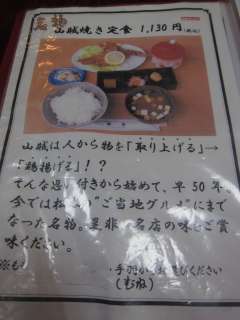 名物
山賊焼き定食 1,130円(税込)
山賊は人から物を「取り上げる」→
「鶏揚げる」!?
そんな思い付きから始めて、早50年。
今では "ご当地グルメ"にまで
なった名物。是非、名店の味をご賞
味ください。
※も
・手羽か ください
(むね)